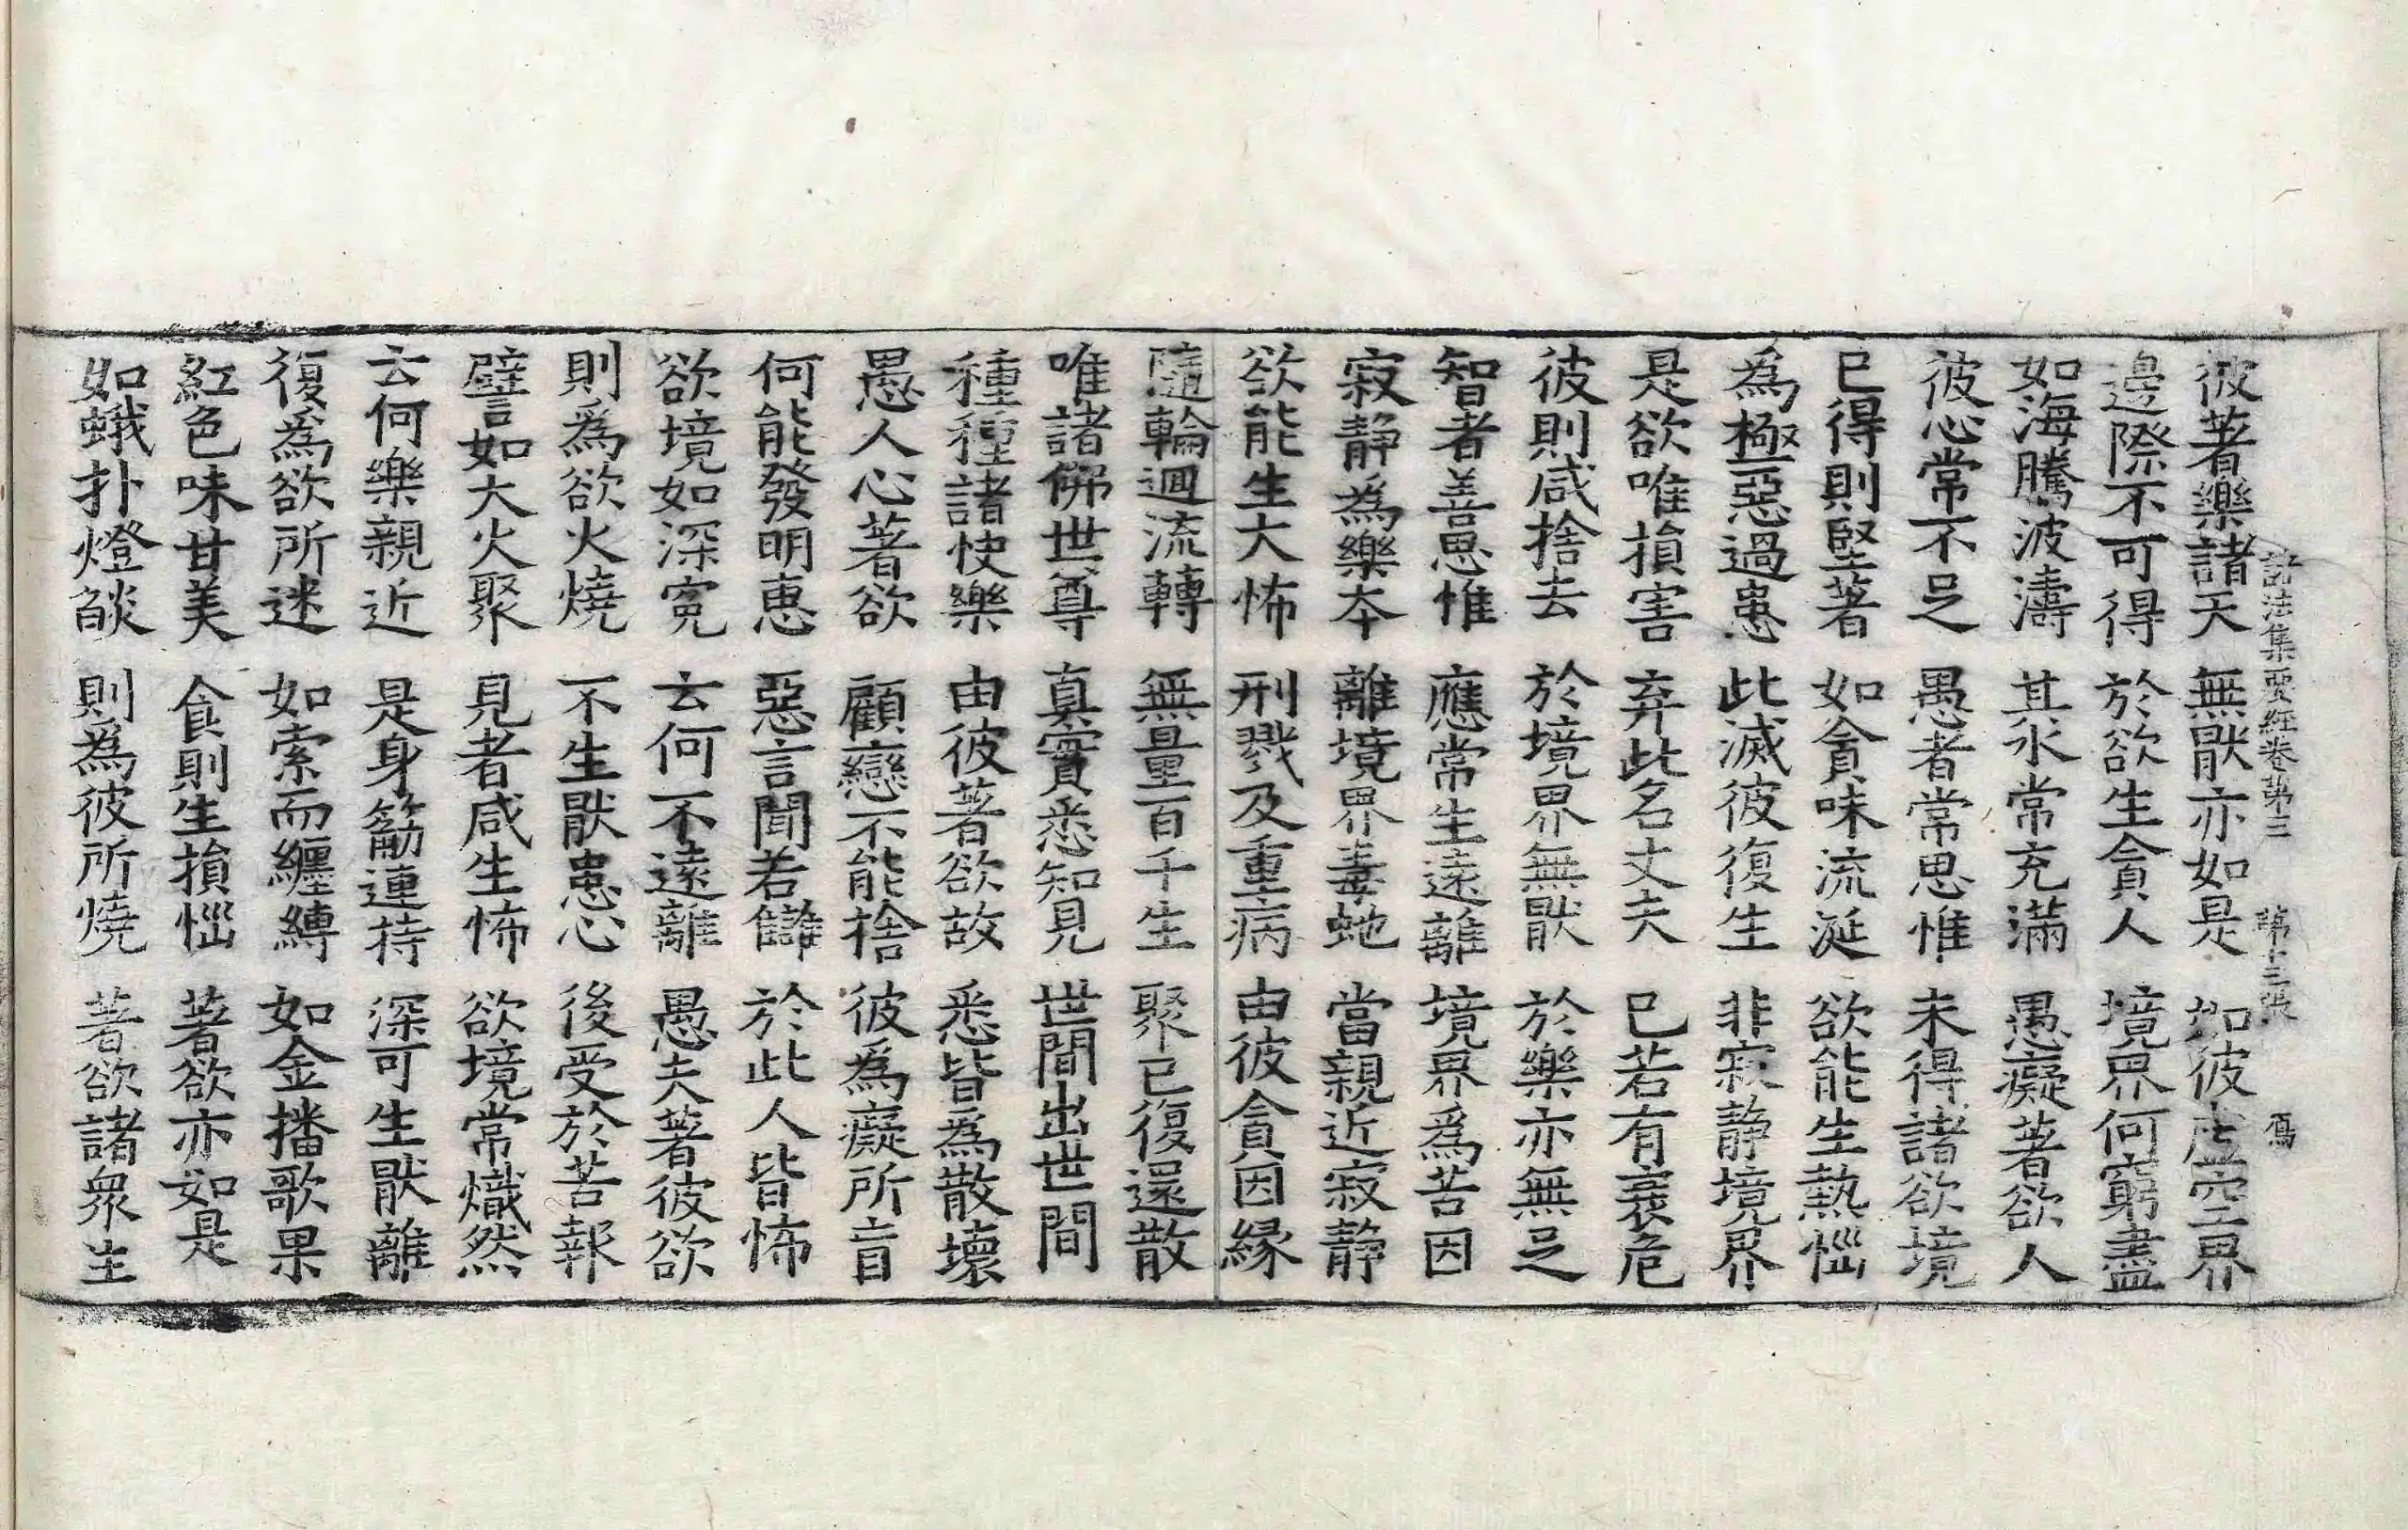 諸法集要經卷第三 第十三張 寫
彼著樂諸天 無猒亦如是 如彼虛空界
邊際不可得 於欲生貪人 境界何窮盡
如海騰波濤 其水常充滿 愚癡著欲人
彼心常不足 愚者常思惟 未得諸欲境
已得則堅著 如貪味流涎 欲能生熱惱
為極惡過患 此滅彼復生 非寂靜境界
是欲唯損害 弃此名丈夫 已若有衰危
彼則咸捨去 於境界無猒 於樂亦無足
智者善思惟 應常生遠離 境界為苦因
寂靜為樂本 離境界毒虵 當親近寂靜
欲能生大怖 刑戮及重病 由彼貪因縁
隨輪迴流轉 無量百千生 聚已復還散
唯諸佛世尊 真實悉知見 世間出世間
種種諸快樂 由彼著欲故 悉皆為散壞
愚人心著欲 顧戀不能捨 彼為癡所盲
何能發明惠 惡言聞若讎 於此人皆怖
欲境如深寃 云何不遠離 愚夫著彼欲
則為欲火燒 不生猒患心 後受於苦報
譬如大火聚 見者咸生怖 欲境常熾然
云何樂親近 是身筋連持 深可生猒離
復為欲所迷 如索而纏縛 如金播歌果
紅色味甘美 食則生損惱 著欲亦如是
如蛾扑燈燄 則為彼所燒 著欲諸衆生